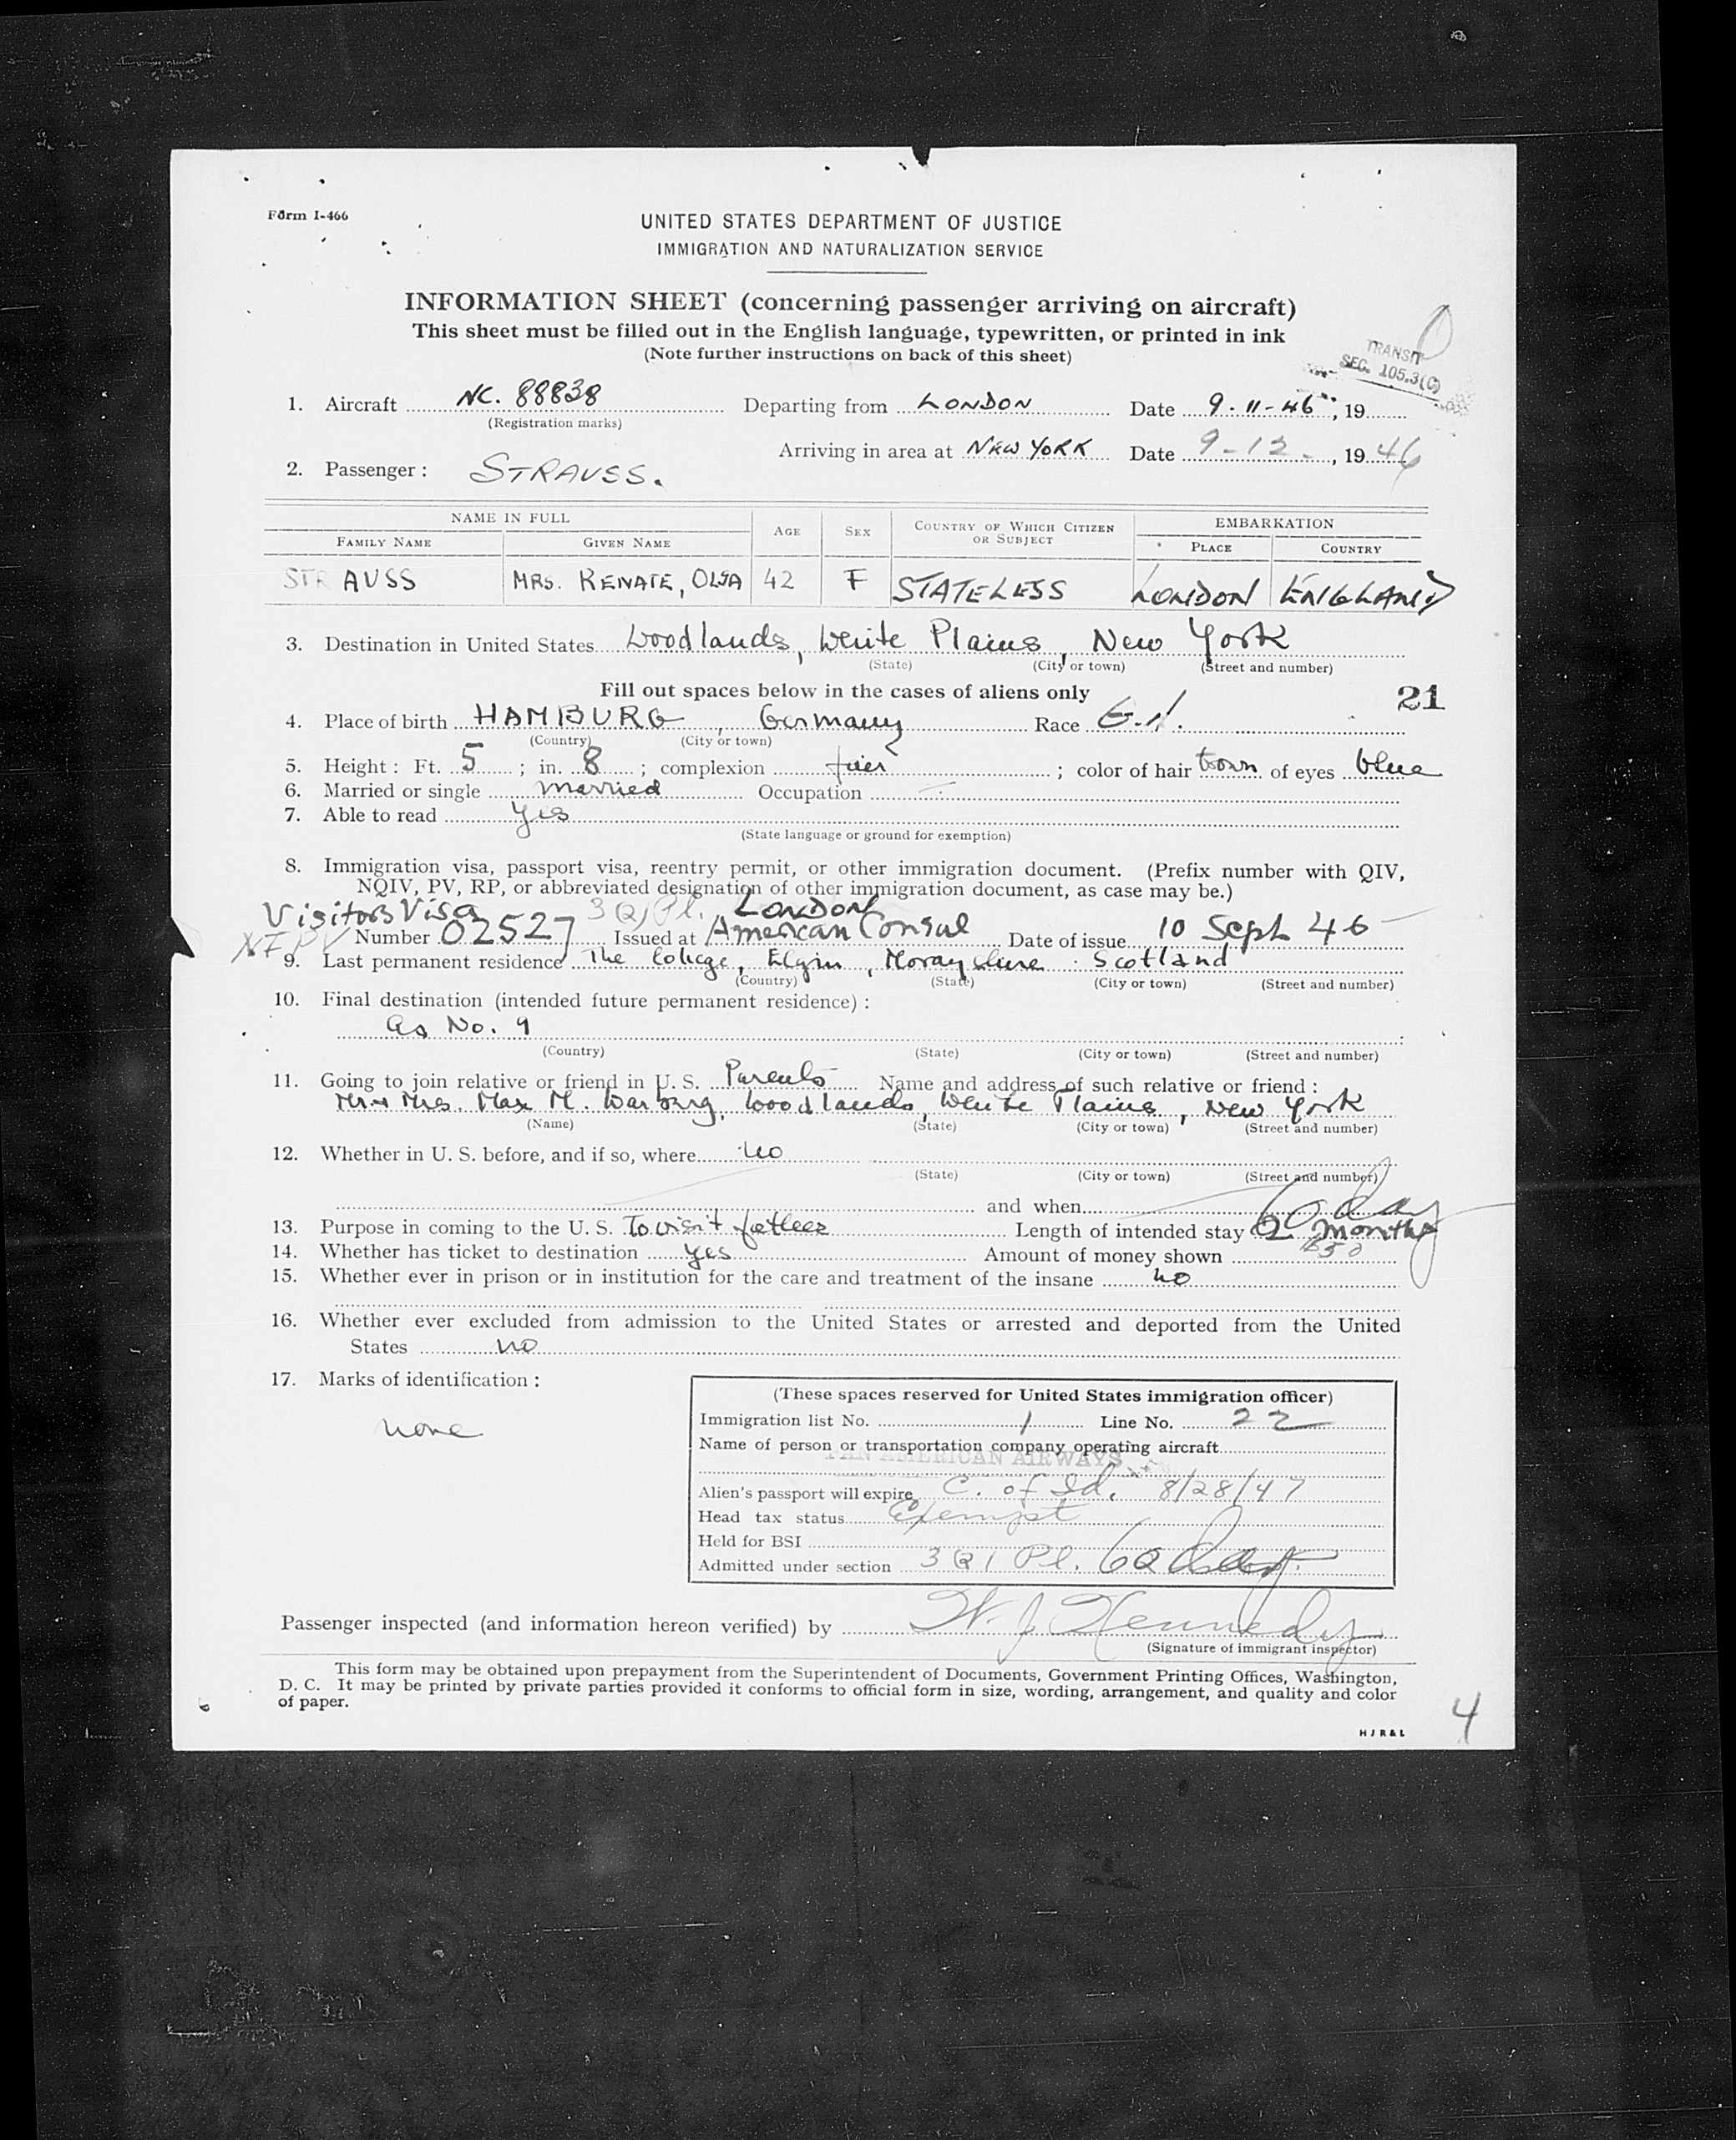 Form I-466
UNITED STATES DEPARTMENT OF JUSTICE
IMMIGRATION AND NATURALIZATION SERVICE
INFORMATION SHEET (concerning passenger arriving on aircraft)
This sheet must be filled out in the English language, typewritten, or printed in ink
(Note further instructions on back of this sheet)
TRANSIT
SEC. 105.3(C)
1. Aircraft NC. 88838 Departing from LONDON Date 9-11-46, 19
(Registration marks)
Arriving in area at NEW YORK Date 9-12-, 1946
2. Passenger: STRAUSS.
NAME IN FULL AGE SEX COUNTRY OF WHICH CITIZEN OR SUBJECT EMBARKATION
FAMILY NAME GIVEN NAME PLACE COUNTRY
STRAUSS MRS. RENATE, OLGA 42 F STATELESS LONDON ENGLAND
3. Destination in United States Woodlands, White Plains, New York
(State) (City or town) (Street and number)
Fill out spaces below in the cases of aliens only
21
4. Place of birth HAMBURG, Germany Race
(Country) (City or town)
5. Height: Ft. 5; in. 8; complexion fair; color of hair brown of eyes blue
6. Married or single married Occupation
7. Able to read yes
(State language or ground for exemption)
8. Immigration visa, passport visa, reentry permit, or other immigration document. (Prefix number with QIV,
NQIV, PV, RP, or abbreviated designation of other immigration document, as case may be.)
Visitors Visa 3(2) Pl. LONDON
Number 02527 Issued at American Consul Date of issue 10 Sept 46
9. Last permanent residence The College, Elgin, Morayshire Scotland
(Country) (State) (City or town) (Street and number)
10. Final destination (intended future permanent residence):
as No. 9
(Country) (State) (City or town) (Street and number)
11. Going to join relative or friend in U. S. Parents Name and address of such relative or friend:
Mr + Mrs. Max M. Warburg, Woodlands, White Plains, New York
(Name) (State) (City or town) (Street and number)
12. Whether in U. S. before, and if so, where no
(State) (City or town) (Street and number)
and when
60 day
13. Purpose in coming to the U. S. To visit father Length of intended stay 2 months
14. Whether has ticket to destination yes Amount of money shown
15. Whether ever in prison or in institution for the care and treatment of the insane no
16. Whether ever excluded from admission to the United States or arrested and deported from the United
States no
17. Marks of identification:
none
(These spaces reserved for United States immigration officer)
Immigration list No. 1 Line No. 22
Name of person or transportation company operating aircraft
PAN AMERICAN AIRWAYS
Alien's passport will expire C. of Id. 8/28/47
Head tax status Exempt
Held for BSI
Admitted under section 3(2) Pl. 60 day
Passenger inspected (and information hereon verified) by W. J. Kennedy
(Signature of immigrant inspector)
This form may be obtained upon prepayment from the Superintendent of Documents, Government Printing Offices, Washington,
D. C. It may be printed by private parties provided it conforms to official form in size, wording, arrangement, and quality and color
of paper.
HJR&L
4